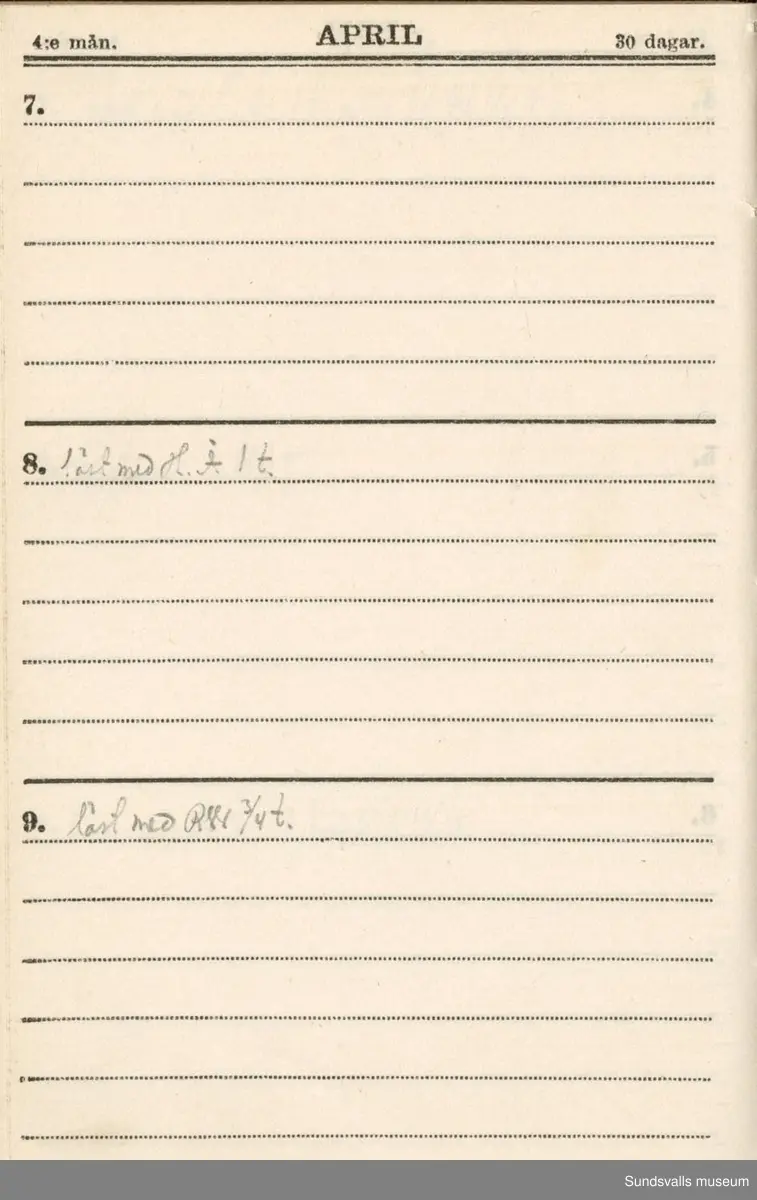 4:e mån. APRIL 30 dagar.
7.
8. läst med H. Å. 1 t.
9. läst med 3/4 t.
Sundsvalls museum